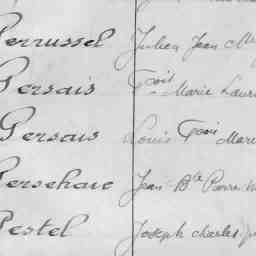 Perrussel Julien Jean M
Persais Fçois Marie Laur
Persais Louis Fçois Mari
Persehais Jean Bte Pierre M
Pestel Joseph Charles